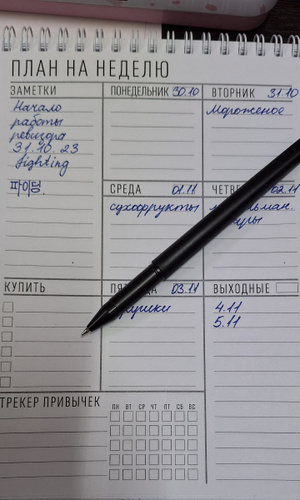 ПЛАН НА НЕДЕЛЮ
ЗАМЕТКИ
Начало
работы
ревизора
31.10.23
fighting
파이팅
ПОНЕДЕЛЬНИК 30.10
ВТОРНИК 31.10
Мороженое
СРЕДА 01.11
сухофрукты
ЧЕТВЕ 02.11
КУПИТЬ
03.11
ВЫХОДНЫЕ
4.11
5.11
ТРЕКЕР ПРИВЫЧЕК
ПН ВТ СР ЧТ ПТ СБ ВС